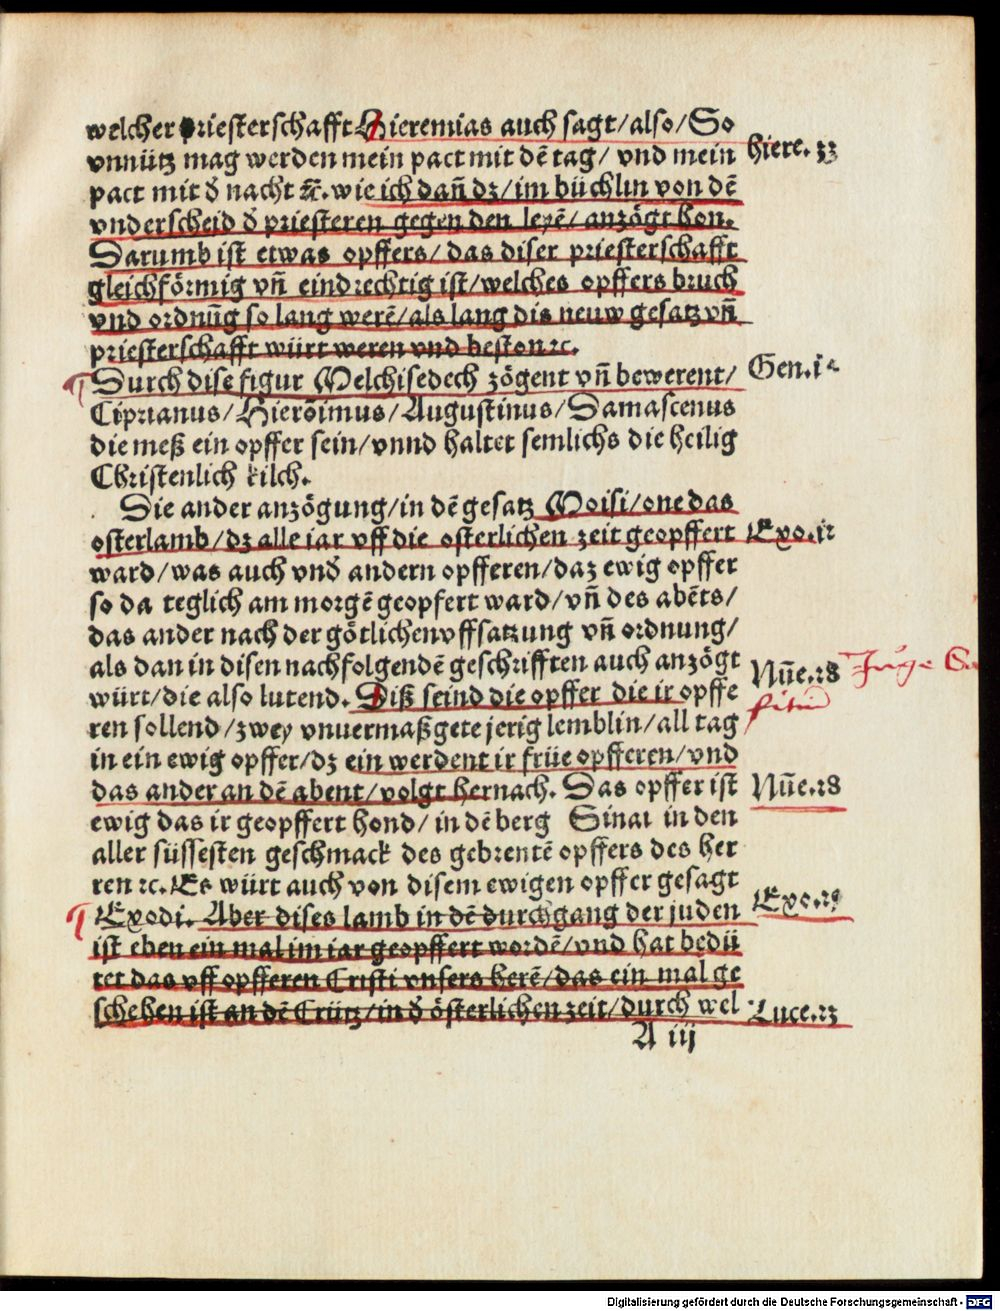 welcher priesterschafft Hieremias auch sagt/also/So
vnnütz mag werden mein pact mit dē tag/ vnd mein
hiere. 33
pact mit d̄ nacht ꝛc̄. wie ich dañ dz/im büchlin von dē
vnderscheid d̄ priesteren gegen den leyē/ anzögt hon.
Darumb ist etwas opffers/ das diser priesterschafft
gleichförmig vñ eindrechtig ist/welches opffers bruch
vnd ordnūg so lang werē/als lang dis neuw gesatz vñ
priesterschafft würt weren vnd beston ꝛc.
Durch dise figur Melchisedech zögent vñ bewerent/
Gen. i4
Ciprianus/Hierōimus/Augustinus/Damascenus
die meß ein opffer sein/vnnd haltet semlichs die heilig
Christenlich kilch.
Die ander anzögung/in dē gesatz Moisi/one das
osterlamb/dz alle iar vff die osterlichen zeit geopffert
Exo. i2
ward/was auch vnd̄ andern opfferen/daz ewig opffer
so da teglich am morgē geopfert ward/vñ des abēts/
das ander nach der götlichen vffsatzung vñ ordnung/
als dan in disen nachfolgendē geschrifften auch anzögt
Nūe. 28 Juge Sa
würt/die also lutend. Diß seind die opffer die ir opffe
ren sollend/zwey vnuermaßgete jerig lemblin/all tag
in ein ewig opffer/dz ein werdent ir früe opfferen/vnd
das ander an dē abent/volgt hernach. Das opffer ist
Nūe. 28
ewig das ir geopffert hond/ in dē berg Sinai in den
aller süssesten geschmack des gebrentē opffers des her
ren ꝛc. Es würt auch von disem ewigen opffer gesagt
Exodi. Aber dises lamb in dē durchgang der juden
Exo. 29
ist eben ein mal im iar geopffert wordē/vnd hat bedü
tet das vff opfferen Cristi vnsers herē/das ein mal ge
schehen ist an dē Crütz/in d̄ österlichen zeit/durch wel
Luce. 23
A iij
Digitalisierung gefördert durch die Deutsche Forschungsgemeinschaft - DFG